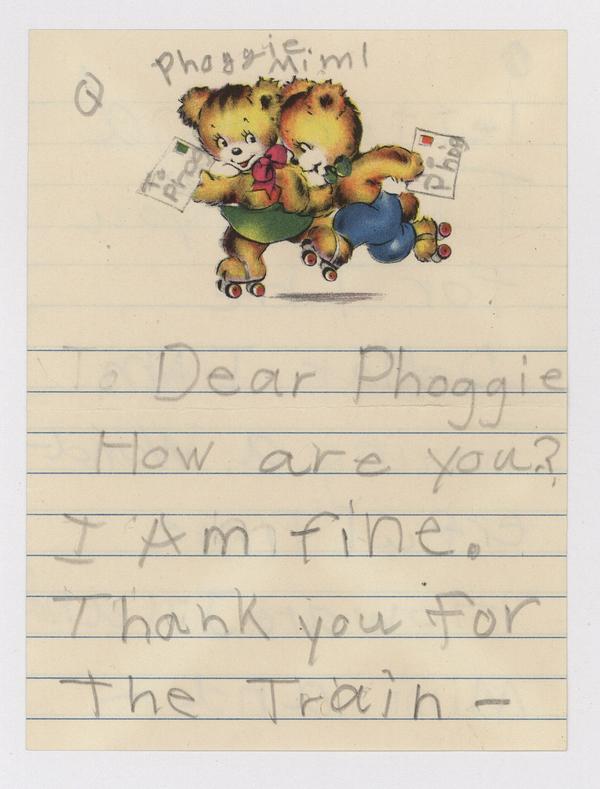 Phoggie
Mimi
To
Phog
To
Phog
To Dear Phoggie
How are you?
I Am fine.
Thank you for
The Train -